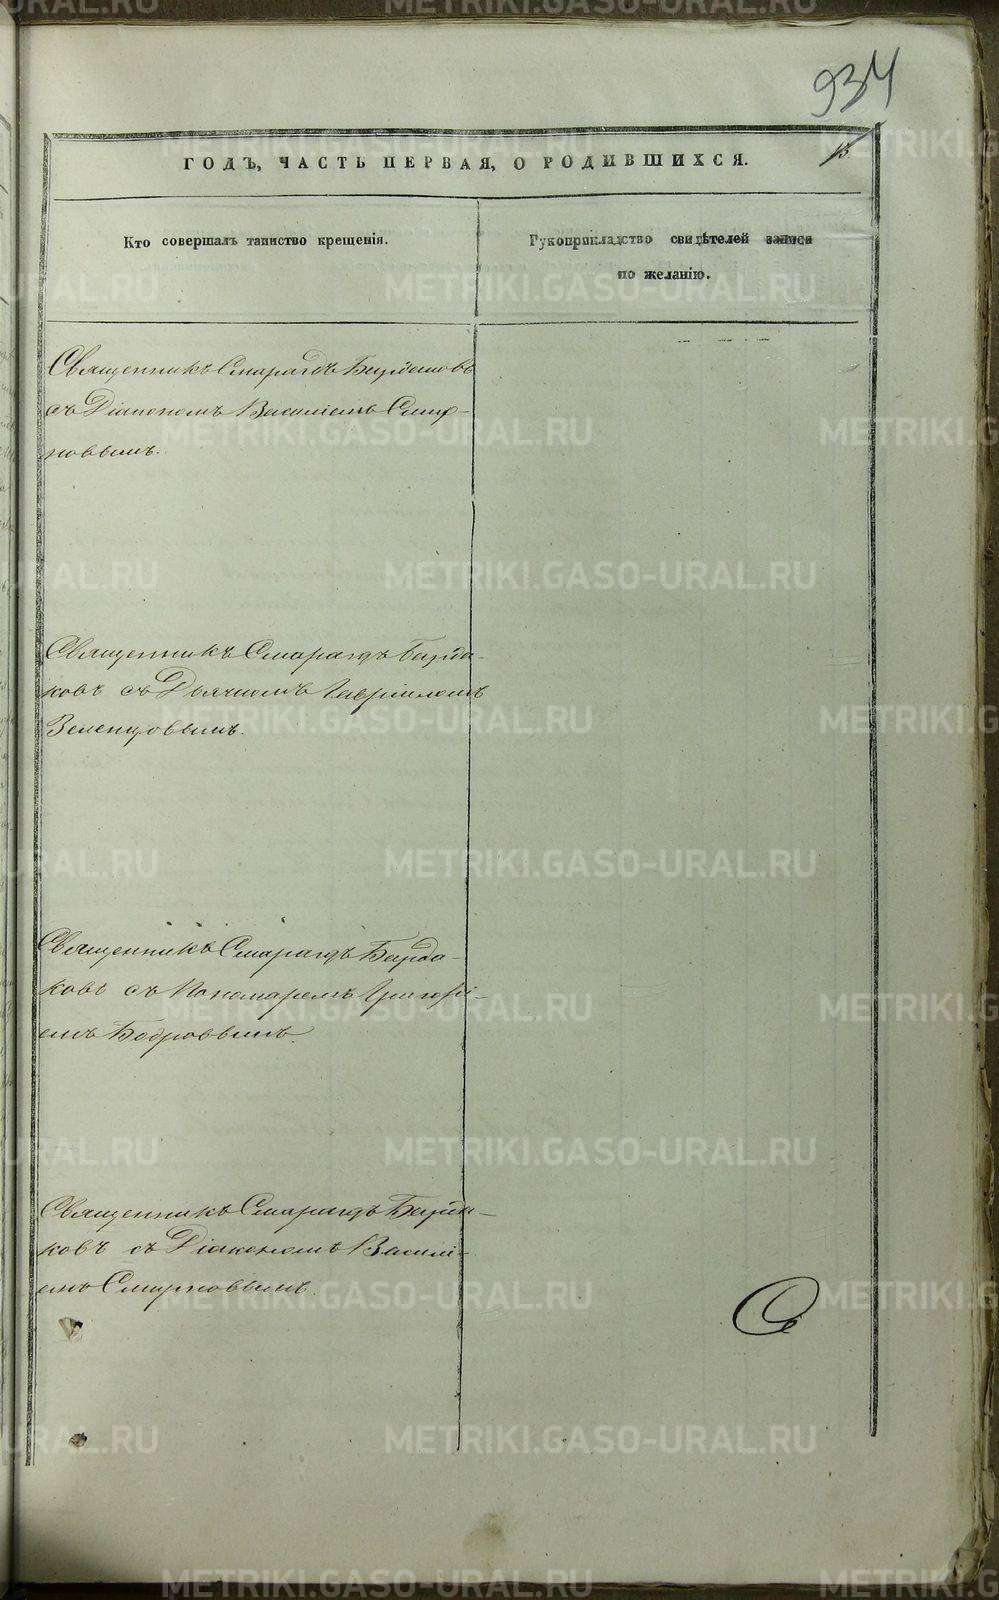 934
ГОДЪ, ЧАСТЬ ПЕРВАЯ, О РОДИВШИХСЯ.
Кто совершалъ таинство крещенія.
Рукоприкладство свидѣтелей записи
по желанію.
Священникъ Смарагдъ Бурдаковъ
съ Діакономъ Василіемъ Смир-
новымъ.
Священникъ Смарагдъ Бурда-
ковъ съ Дьячкомъ Гавріиломъ
Зеленцовымъ.
Священникъ Смарагдъ Бурда-
ковъ съ Пономаремъ Григорі-
емъ Бобровымъ.
Священникъ Смарагдъ Бурда-
ковъ съ Діакономъ Василі-
емъ Смирновымъ.
METRIKI.GASO-URAL.RU